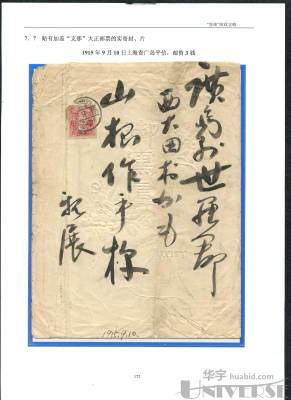 7. 7 贴有加盖“支那”大正邮票的实寄封、片
1915 年 9 月 10 日上海寄广岛平信，邮资 3 钱
廣島县世羅郡
西大田村かも
山根作平様
親展
1915.9.10.
177
华宇 huabid.com
UNIVERSE